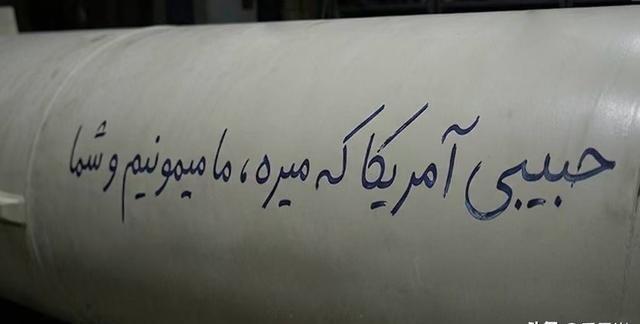 حبیبی آمریکا که میره، ما میمونیم و شما